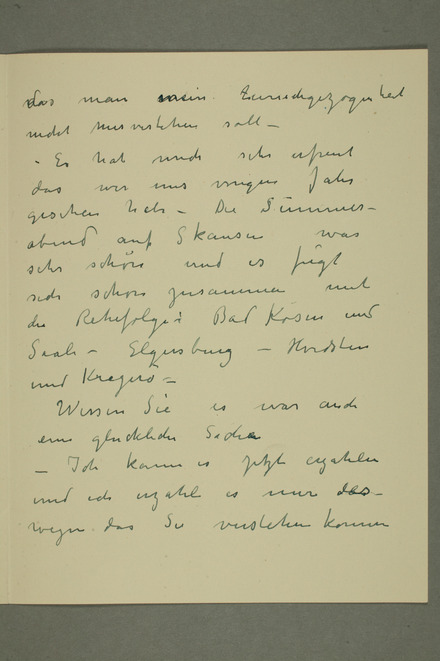 das man mein Zurückgezogenheit
nicht misverstehen soll –
– Es hat mich sehr erfreut
das wir uns voriges Jahr
gesehen hab – Die Sommer-
abend auf Skansen was
sehr schön und es fügt
sich schon zusammen mit
die Reihefolge: Bad Kösen und
Saale – Elgersburg – Hvidsten
und Kragerö –
Wissen Sie es war auch
eine glückliche Sache
– Ich kann es jetzt erzählen
und ich erzähle es nur des-
wegen das Sie verstehen können